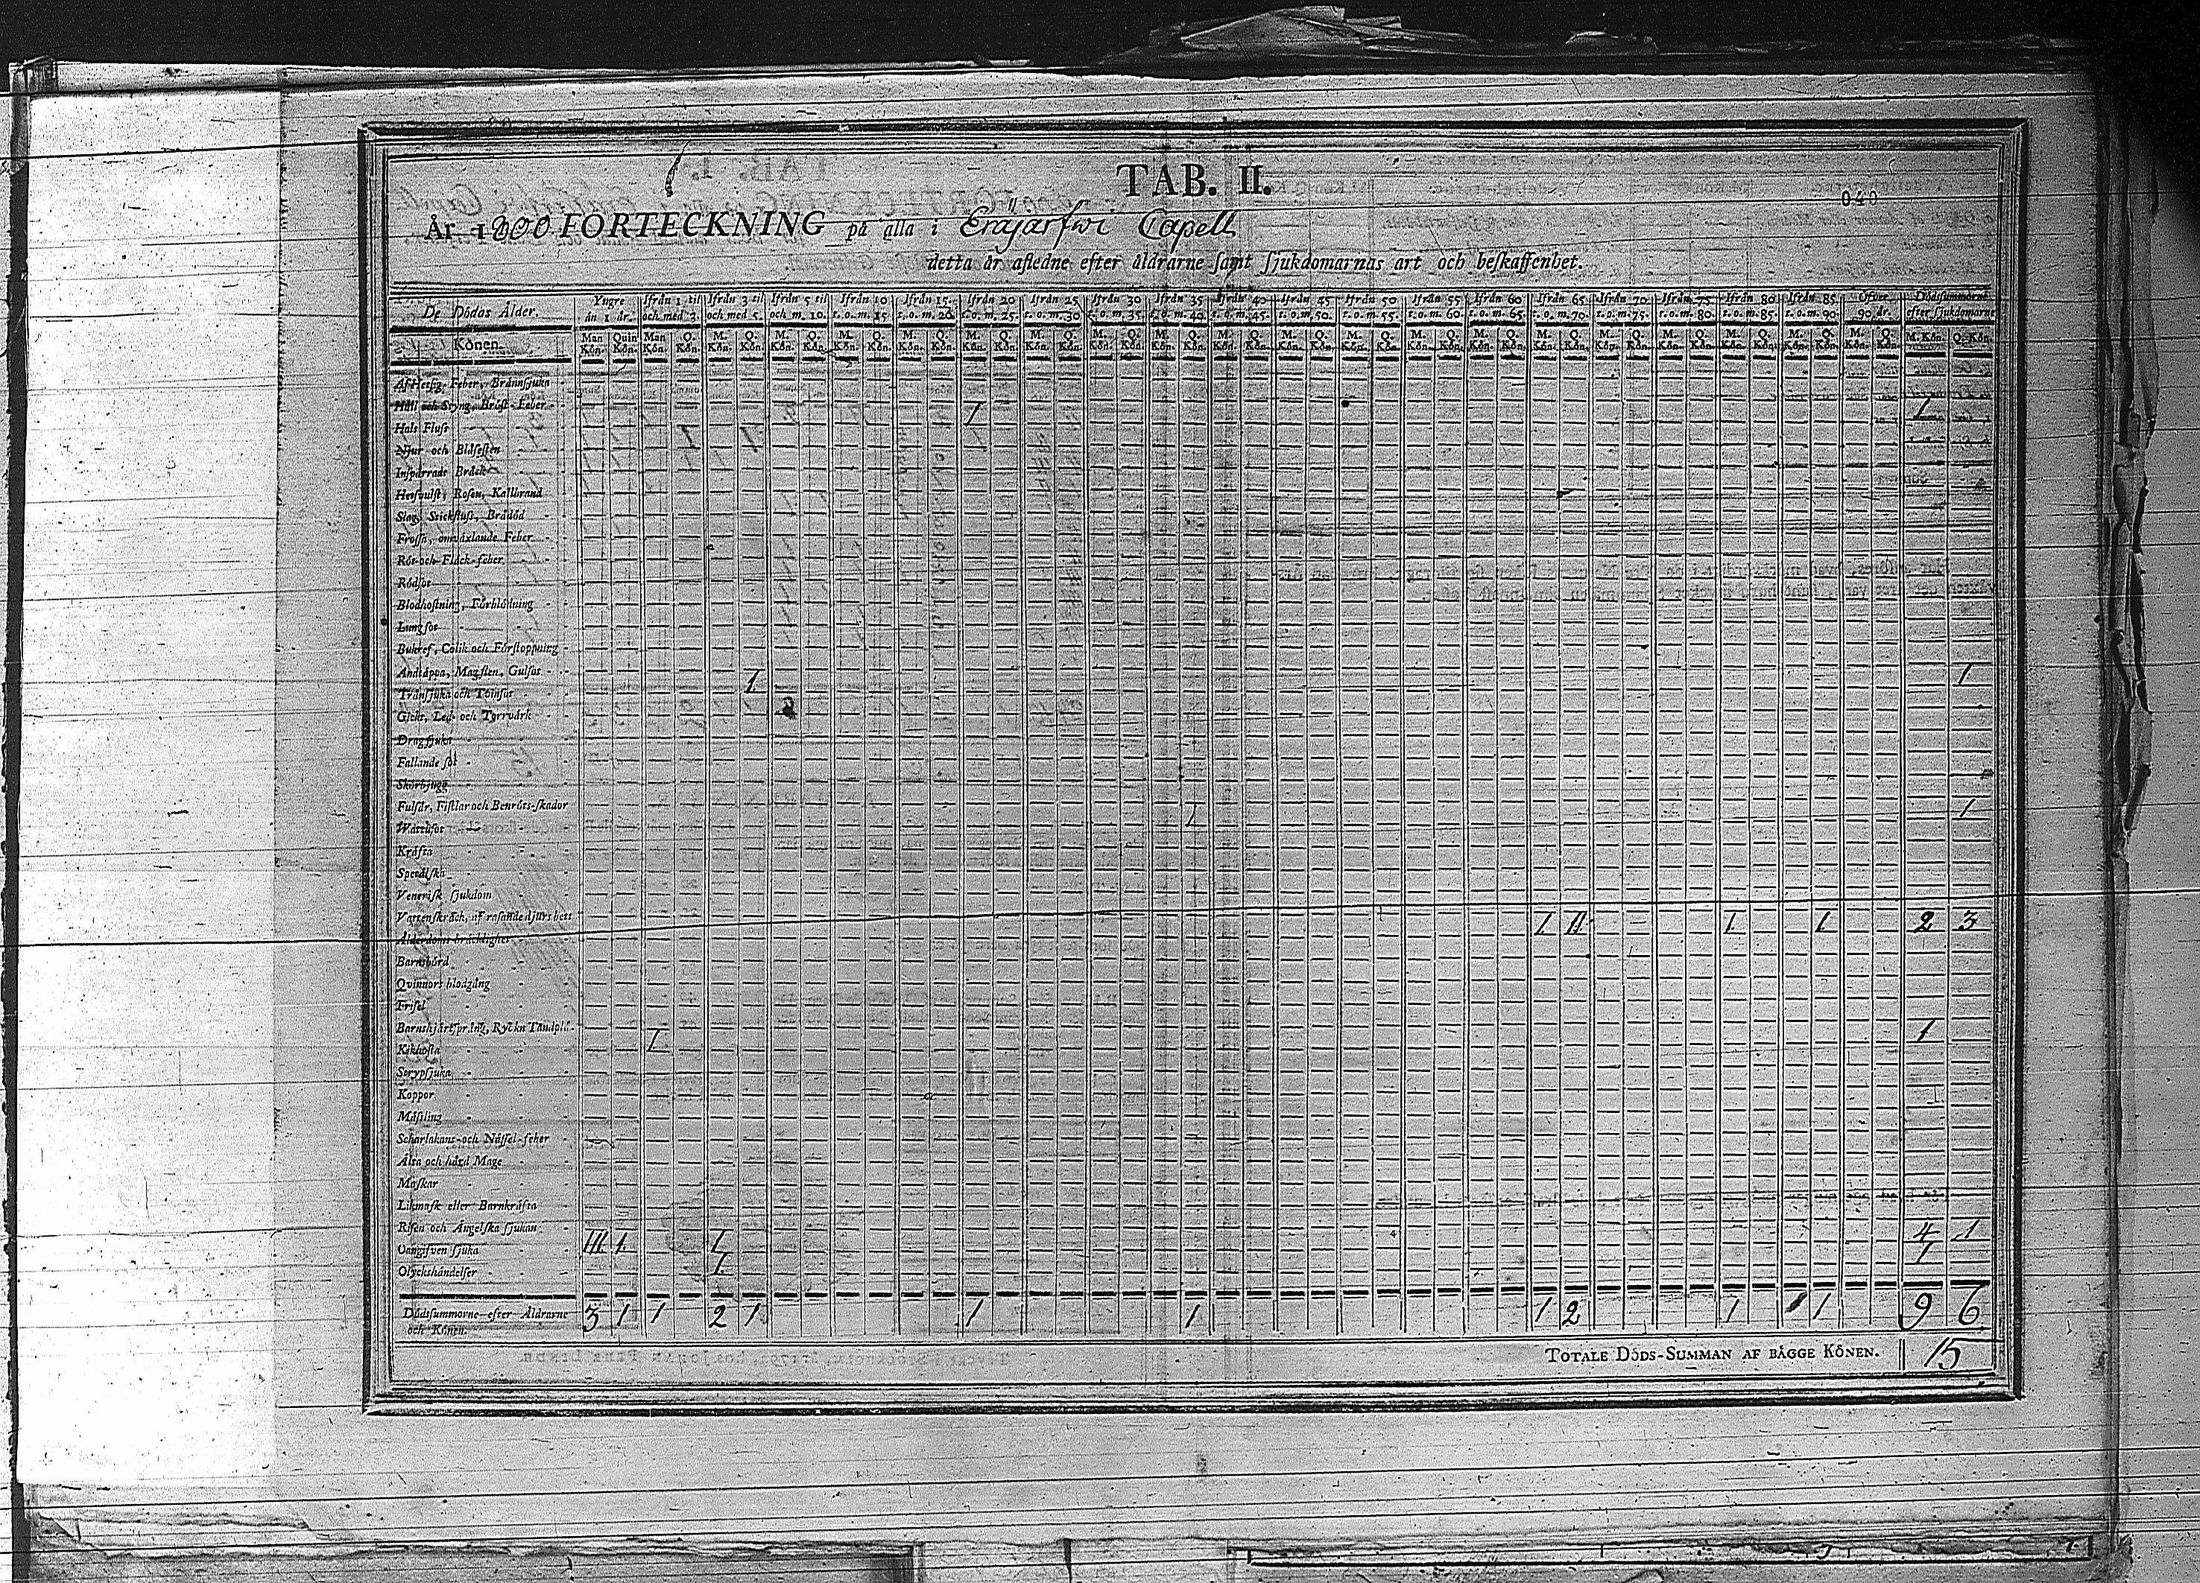 TAB. II.
040
År 1800 FÖRTECKNING på alla i Eräjärfwi Capell
detta år afledne efter åldrarne samt sjukdomarnas art och beskaffenhet.
De Dödas Ålder. Yngre än 1 år. Ifrån 1 til och med 3. Ifrån 3 til och med 5. Ifrån 5 til och m. 10. Ifrån 10 t. o. m. 15. Ifrån 15 t. o. m. 20. Ifrån 20 t. o. m. 25. Ifrån 25 t. o. m. 30. Ifrån 30 t. o. m. 35. Ifrån 35 t. o. m. 40. Ifrån 40 t. o. m. 45. Ifrån 45 t. o. m. 50. Ifrån 50 t. o. m. 55. Ifrån 55 t. o. m. 60. Ifrån 60 t. o. m. 65. Ifrån 65 t. o. m. 70. Ifrån 70 t. o. m. 75. Ifrån 75 t. o. m. 80. Ifrån 80 t. o. m. 85. Ifrån 85 t. o. m. 90. Öfver 90 år. Dödssummorne efter sjukdomarne
Könen. Man Kön. Quin Kön. Man Kön. Q. Kön. M. Kön. Q. Kön. M. Kön. Q. Kön. M. Kön. Q. Kön. M. Kön. Q. Kön. M. Kön. Q. Kön. M. Kön. Q. Kön. M. Kön. Q. Kön. M. Kön. Q. Kön. M. Kön. Q. Kön. M. Kön. Q. Kön. M. Kön. Q. Kön. M. Kön. Q. Kön. M. Kön. Q. Kön. M. Kön. Q. Kön. M. Kön. Q. Kön. M. Kön. Q. Kön. M. Kön. Q. Kön. M. Kön. Q. Kön. M. Kön. Q. Kön. M. Kön. Q. Kön.
Af Hetsig Feber, Brännsjuka
Håll och Styng, Bröst-Feber 1 1
Hals Fluss
Njur och Blåsesten
Inspärradt Bråck
Hetsvulst, Rosen, Kallbrand
Slag, Stickfluss, Brådöd
Frossa, omväxlande Feber
Röt-och Fläck-feber
Rödsot
Blodhostning, Förblödning
Lungsot
Bukref, Colik och Förstoppning
Andtäppa, Magsten, Gulsot 1 1
Tränsjuka och Tvinsot
Gickt, Led- och Torrvärk
Dragsjuka
Fallande sot
Skörbjugg
Fulsår, Fistlar och Benröts-skador 1 1
Wattusot
Kräfta
Spetälska
Venerisk sjukdom
Vattenskräck, af rasande djurs bett 1 11 1 1 2 3
Ålderdoms bräcklighet
Barnsbörd
Qvinnors blodgång
Frisel
Barnshjärtspräng, Ryckn Tandpl. 1 1
Kikhosta
Strypsjuka
Koppor
Mässling
Scharlakans-och Nässel-feber
Älta och hård Mage
Maskar
Likmask eller Barnkräfta
Risen och Ängelska sjukan
Oangifven sjuka 111 1 1 4 1
Olyckshändelser 1 1
Dödssummorne efter Åldrarne 3 1 1 2 1 1 1 1 2 1 1 9 6
och Könen.
TOTALE DÖDS-SUMMAN AF BÅGGE KÖNEN. 15